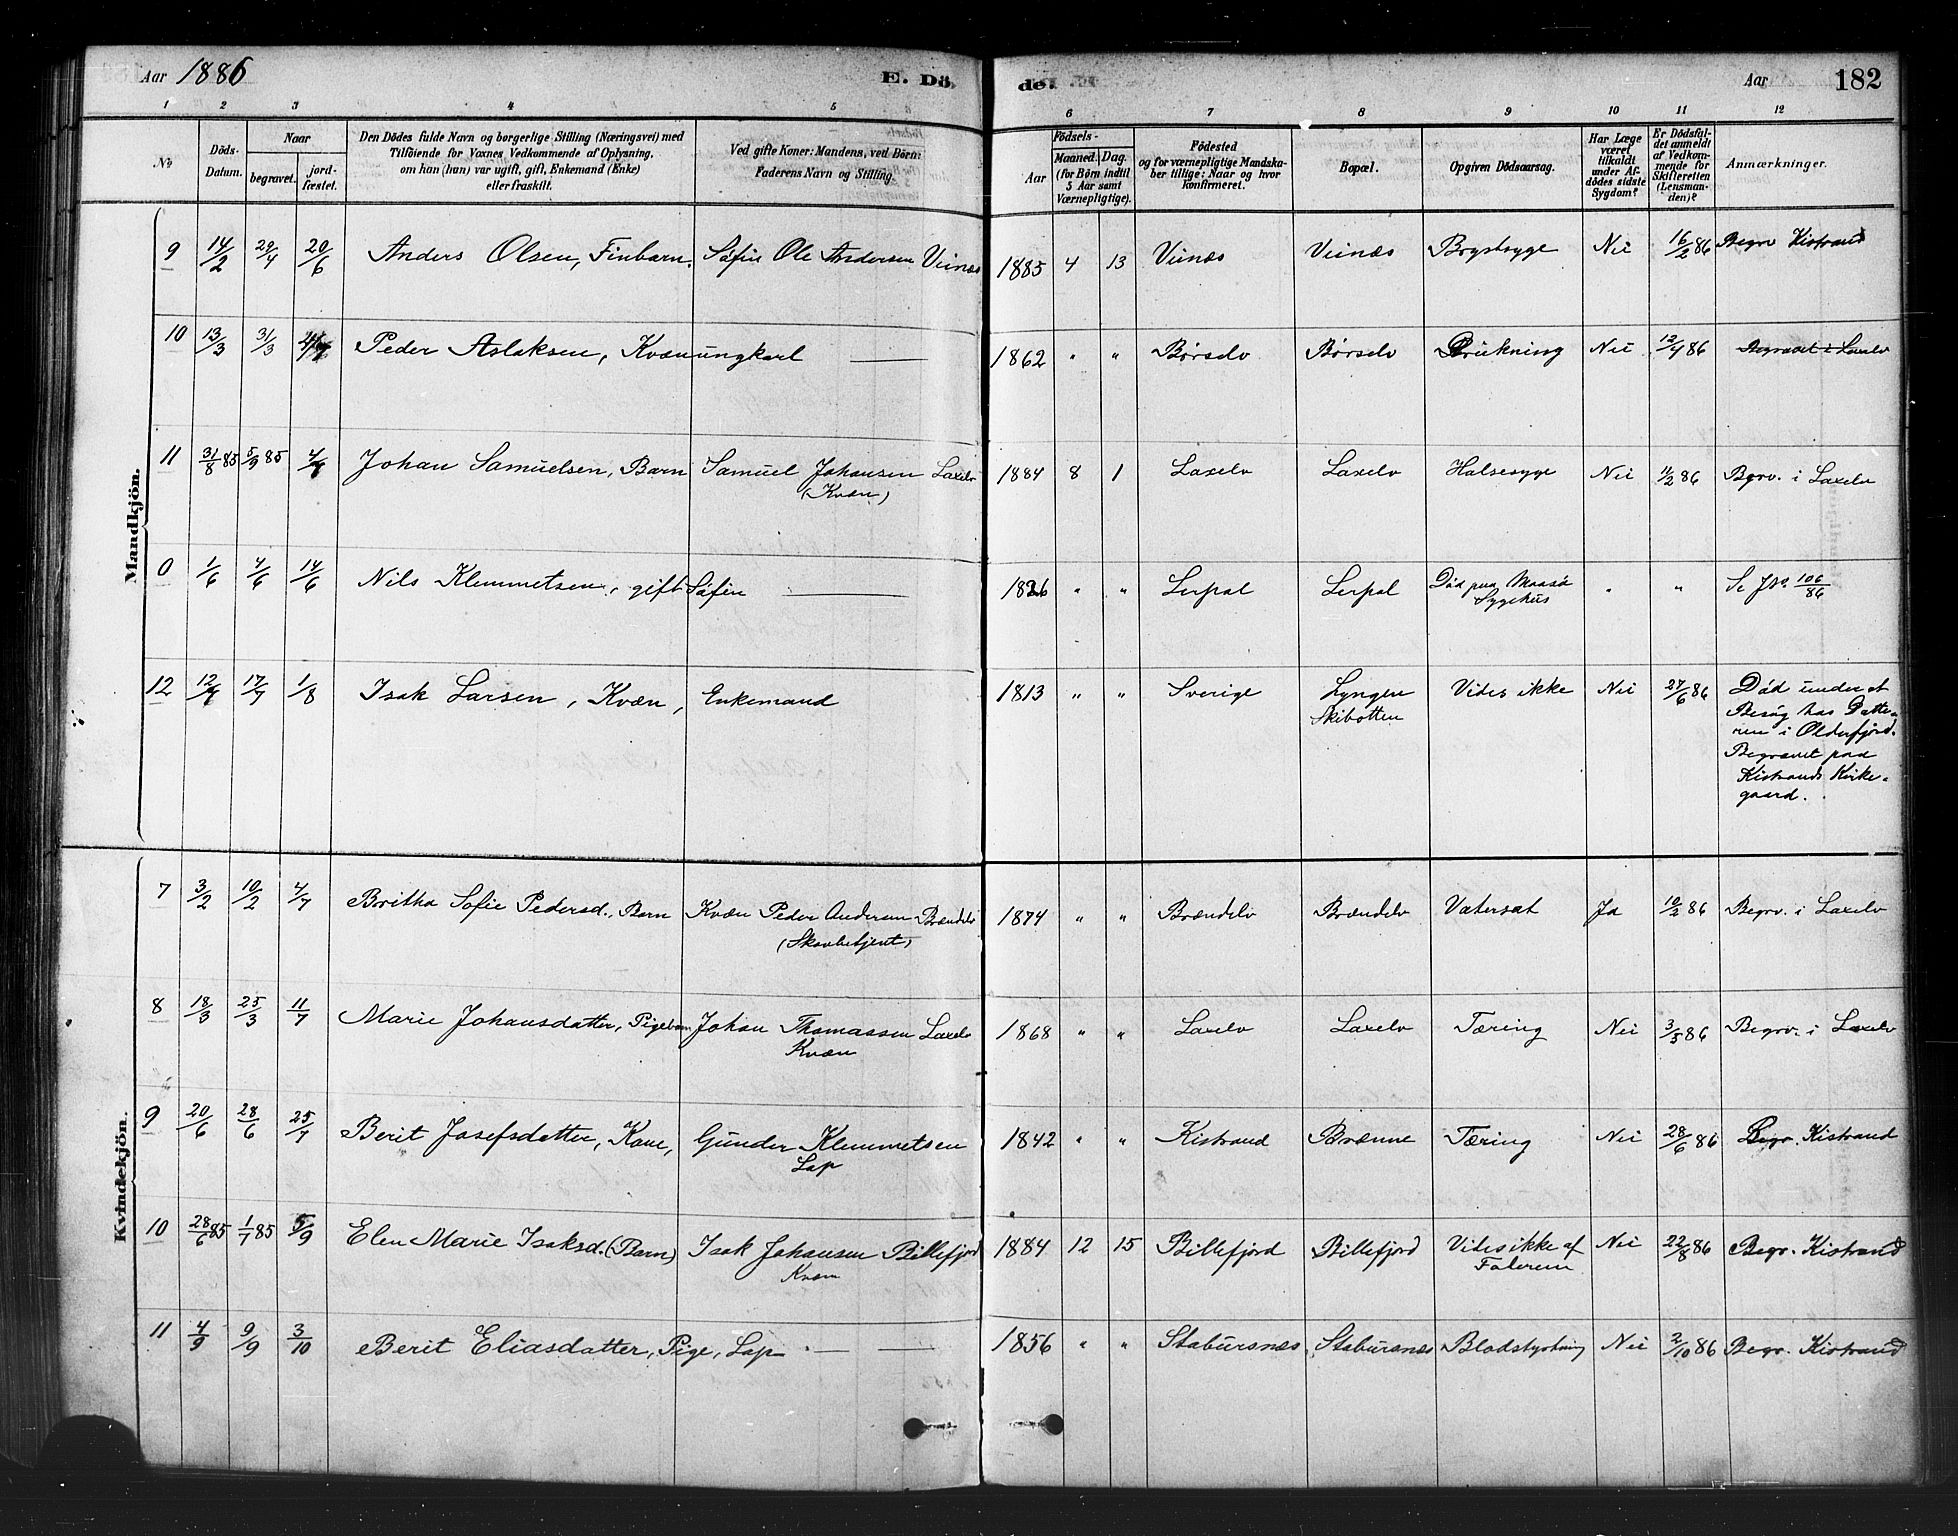 Aar 1886 E. Dö de. Aar 182
1 2 3 4 5 6 7 8 9 10 11 12
No Döds-Datum. Naar begravet. jord-fæstet. Den Dödes fulde Navn og borgerlige Stilling (Næringsvei) med Tilföiende for Voxnes Vedkommende af Oplysning, om han (hun) var ugift, gift, Enkemand (Enke) eller fraskilt. Ved gifte Koner: Mandens, ved Börn: Faderens Navn og Stilling. Födsels- Aar Maaned. Dag. (for Börn indtil 5 Aar samt Værnepligtige). Födested og for værnepligtige Mandskaber tillige: Naar og hvor konfirmeret. Bopæl. Opgiven Dödsaarsag. Har Læge været tilkaldt under Afdödes sidste Sygdom? Er Dödsfaldet anmeldt af Vedkommende for Skifteretten (Lensmanden)? Anmærkninger.
Mandkjön.
9 14/2 29/4 20/6 Anders Olsen, Finbarn. Søfin Ole Andersen Veinæs 1885 4 13 Veinæs Veinæs Brystsyge Nei 16/2 86 Begrv Kistrand
10 13/3 31/3 Peder Aslaksen, Kvænungkarl — 1862 " " Børselv Børselv Drukning Nei 12/4 86 Begravet i Laxelv
11 31/8 85 5/9 85 Johan Samuelsen, Barn Samuel Johansen Laxelv (Kvæn) 1884 8 1 Laxelv Laxelv Halsesyge Nei 11/2 86 Begrv. i Laxelv
0 1/6 4/6 14/6 Nils Klemmetsen, gift Søfin — 1826 " " Lerpol Lerpol Død paa Maasø Sygehus " " Se J.No 106/86
12 17/7 1/8 Isak Larsen, Kvæn, Enkemand 1813 " " Sverige Lyngen Skibotten Vides ikke Nei 27/6 86 Død under et Besøg hos Datteren i Olderfjord. Begravet paa Kistrands Kirkegaard.
Kvindekjön.
7 3/2 10/2 4/7 Britha Sofie Pedersd., Barn Kvæn Peder Andersen Brændelv (Skovbetjent) 1874 " " Brændelv Brændelv Vatersot Ja 10/2 86 Begrv. i Laxelv
8 18/3 25/3 11/7 Marie Johansdatter, Pigebarn Johan Thomassen Laxelv Kvæn 1868 " " Laxelv Laxelv Tæring Nei 3/5 86 Begrv. i Laxelv
9 20/6 28/6 25/7 Berit Josefsdatter, Kone, Gunder Klemmetsen Lap 1842 " " Kistrand Brænne Tæring Nei 28/6 86 Begr. Kistrand
10 28/6 85 1/7 85 5/9 Elen Marie Isaksd. (Barn) Isak Johansen Billefjord Kvæn 1884 12 15 Billefjord Billefjord Vides ikke af Faderen Nei 22/8 86 Begr. Kistrand
11 4/9 9/9 3/10 Berit Eliasdatter, Pige, Lap — — 1856 " " Stabursnæs Stabursnæs Blodstyrtning Nei 2/10 86 Begr. Kistrand